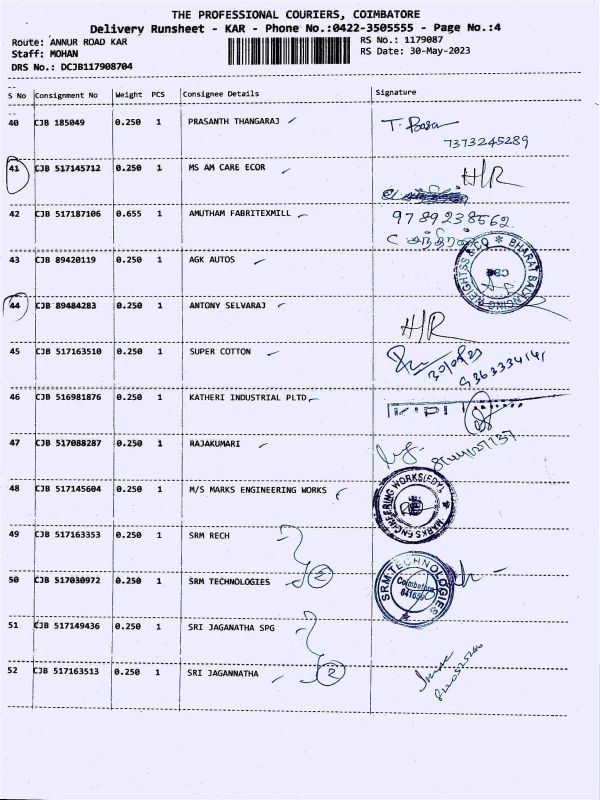 THE PROFESSIONAL COURIERS, COIMBATORE
Delivery Runsheet - KAR - Phone No.:0422-3505555 - Page No.:4
Route: ANNUR ROAD KAR RS No.: 1179087
Staff: MOHAN RS Date: 30-May-2023
DRS No.: DCJB117908704
S No Consignment No Weight PCS Consignee Details Signature
40 CJB 185049 0.250 1 PRASANTH THANGARAJ
7373245289
41 CJB 517145712 0.250 1 MS AM CARE ECOR H/R
42 CJB 517187106 0.655 1 AMUTHAM FABRITEXMILL 9789238562
43 CJB 89420119 0.250 1 AGK AUTOS
WEIGHTSS & CO * BHARAT BALANCING
CBE
44 CJB 89484283 0.250 1 ANTONY SELVARAJ H/R
45 CJB 517163510 0.250 1 SUPER COTTON
30/05/23
9363334141
46 CJB 516981876 0.250 1 KATHERI INDUSTRIAL PLTD
47 CJB 517088287 0.250 1 RAJAKUMARI
48 CJB 517145604 0.250 1 M/S MARKS ENGINEERING WORKS
MARKS ENGINEERING WORKS
49 CJB 517163353 0.250 1 SRM RECH
50 CJB 517030972 0.250 1 SRM TECHNOLOGIES 2
SRM TECHNOLOGIES
Coimbatore
51 CJB 517149436 0.250 1 SRI JAGANATHA SPG
52 CJB 517163513 0.250 1 SRI JAGANNATHA 2